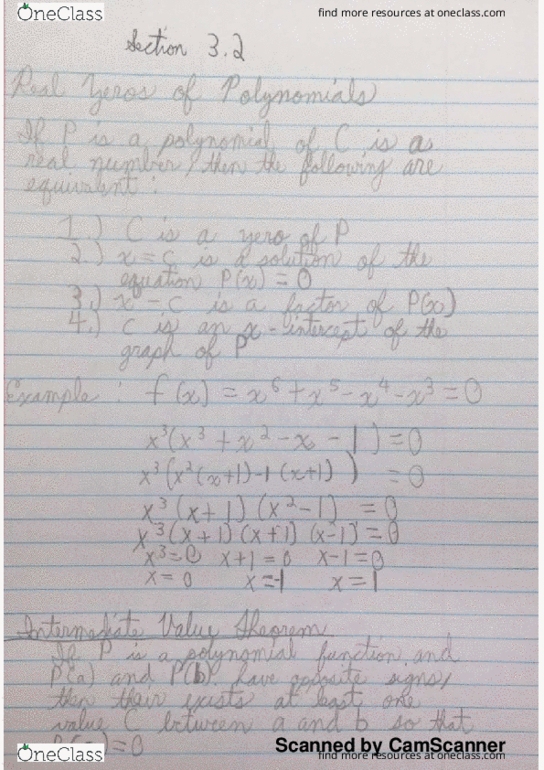 OneClass
find more resources at oneclass.com
Section 3.2
Real Zeros of Polynomials
If P is a polynomial of C is a
real number, then the following are
equivalent:
1.) C is a zero of P
2.) x = c is a solution of the
equation P(x) = 0
3.) x - c is a factor of P(x)
4.) c is an x-intercept of the
graph of P
Example: f(x) = x⁶ + x⁵ - x⁴ - x³ = 0
x³(x³ + x² - x - 1) = 0
x³(x²(x+1)-1(x+1)) = 0
x³(x+1)(x²-1) = 0
x³(x+1)(x+1)(x-1) = 0
x³=0 x+1=0 x-1=0
x=0 x=-1 x=1
Intermediate Value Theorem
If P is a polynomial function and
P(a) and P(b) have opposite signs,
then their exists at least one
value C between a and b so that
=0
Scanned by CamScanner
OneClass
find more resources at oneclass.com